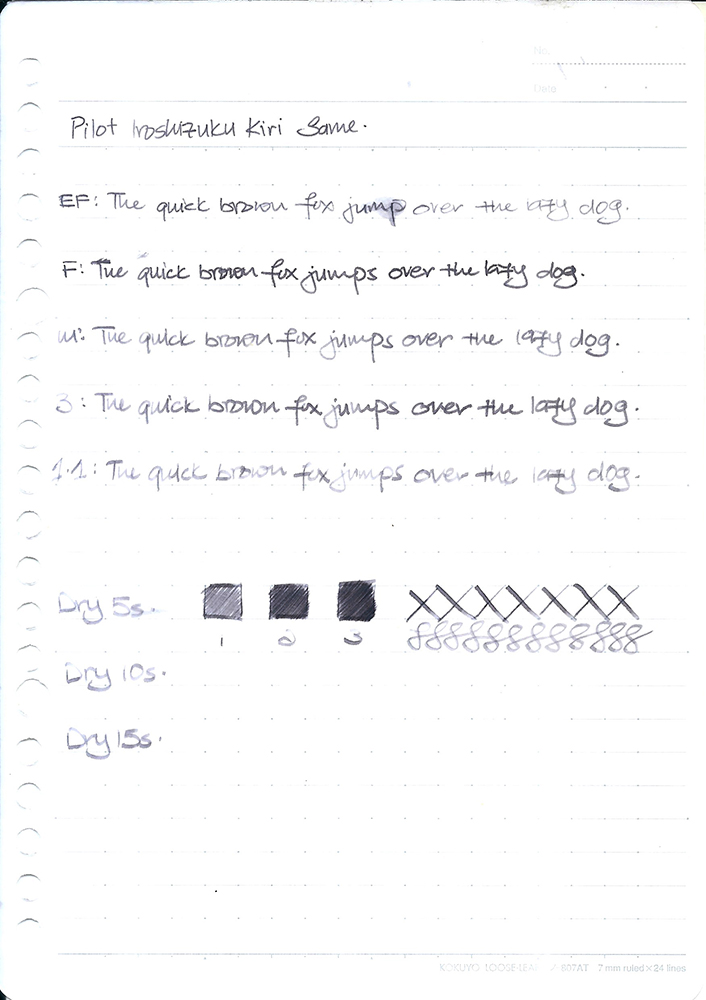 No.
Date
Pilot Iroshizuku Kiri Same.
EF: The quick brown fox jump over the lazy dog.
F: The quick brown fox jumps over the lazy dog.
M: The quick brown fox jumps over the lazy dog.
3: The quick brown fox jumps over the lazy dog.
1.1: The quick brown fox jumps over the lazy dog.
Dry 5s.
1 2 3
Dry 10s.
Dry 15s.
KOKUYO LOOSE-LEAF / 807AT 7 mm ruled × 24 lines